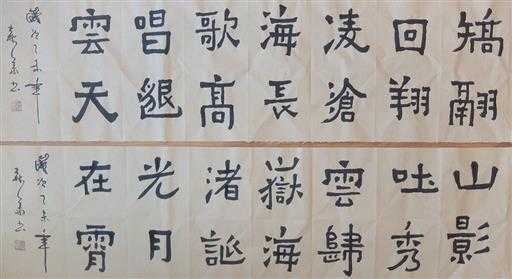 矯翮
回翔
凌滄
海長
歌高
唱懇
雲天
歲次丁未年
山影
吐秀
雲歸
嶽海
渚誕
光月
在霄
歲次丁未年